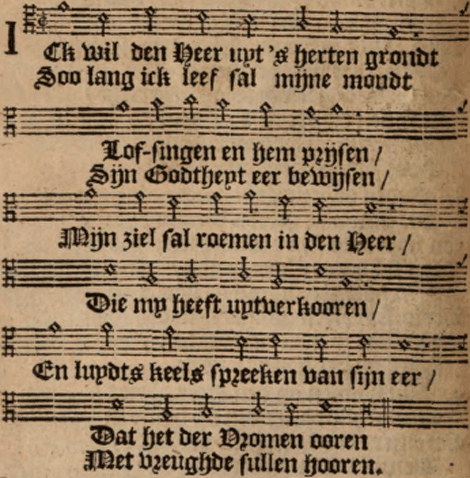 ICk wil den Heer uyt 's herten grondt
Soo lang ick leef sal mijne mondt
Lof-singen en hem prijsen /
Sijn Godtheyt eer bewijsen /
Mijn ziel sal roemen in den Heer /
Die my heeft uytverkooren /
En luydts keels spreeken van sijn eer /
Dat het der Vromen ooren
Met vreughde sullen hooren.